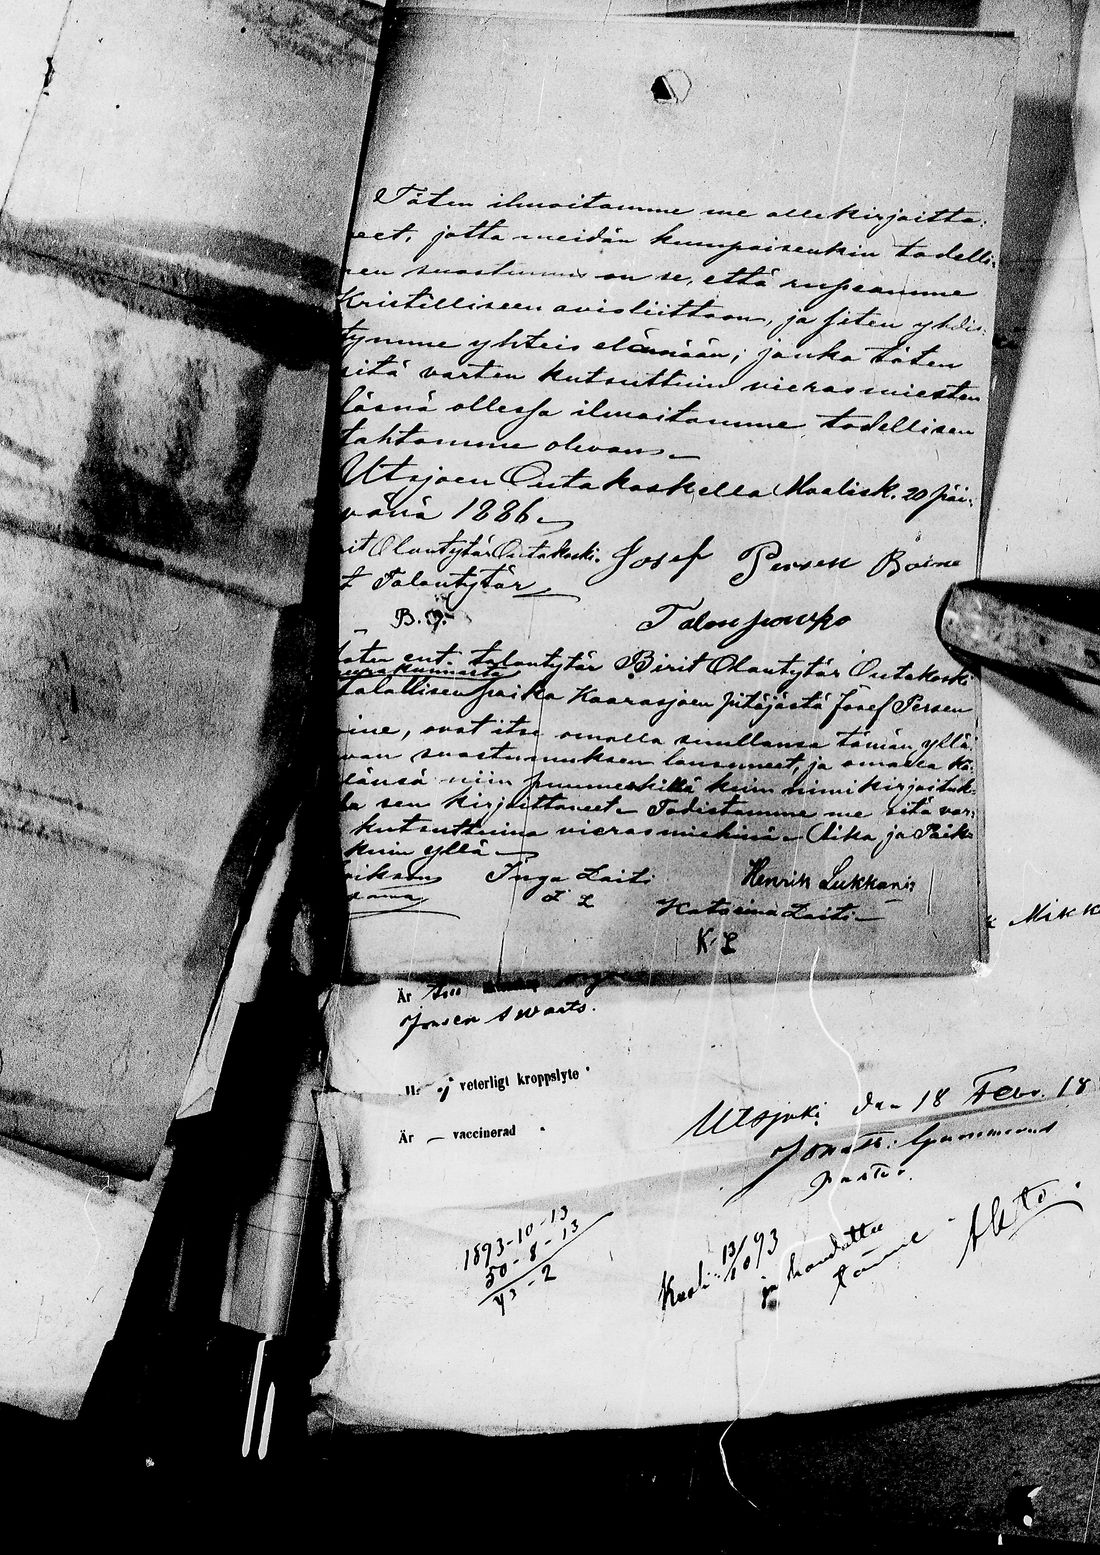 Täten ilmoitamme me allekirjoitta:
eet, jotta meidän kumpaisenkin todelli:
nen suostumus on se, että rupeamme
Kristilliseen avioliittoon, ja siten yhdis:
tymme yhteis elämään; jonka täten
sitä varten kutsuttuin vierasmiesten
läsnä ollessa ilmoitamme todellisen
tahtomme olevan.
Utsjoen Outakoskella Maalisk. 20 päi:
vänä 1886.
rit Olantytär Outakoski. Josef Persen Boine
t Talontytär
B. O. Talonpoika
ent. talontytär Birit Olantytär Outakoski
talallisen poika Kaarasjoen pitäjästä Josef Persen
oine, ovat itse omalla suullansa tämän yllä
van suostumuksen lausuneet, ja omalla kä:
dänsä niin puumerkillä kuin nimikirjoituk
la sen kirjoittaneet. Todistamme me sitä var:
kutsuttuina vierasmiehinä. Aika ja Paik
kuin yllä
Inga Laiti Henrik Lukkari
I L Katarina Laiti
K L
Mikk
Är
Jonsen Swarts.
ej veterligt kroppslyte
Är vaccinerad
Utsjoki den 18 Febr. 18
Pastor.
1893-10-13
50-8-13
43-2
Kuoli 13/10 93
ja haudattu
tänne Ahto